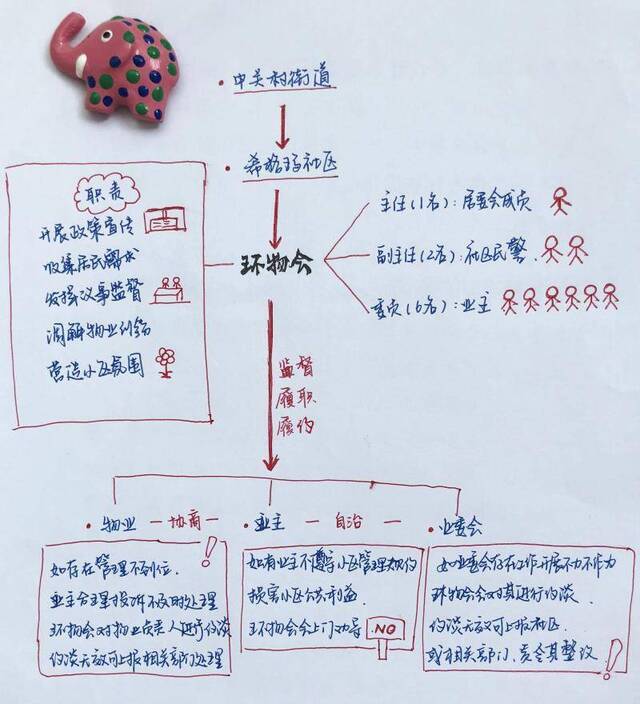 中关村街道
希格玛社区
环物会
职责
开展政策宣传
收集居民需求
发挥议事监督
调解物业纠纷
营造小区氛围
主任(1名):居委会成员
副主任(2名):社区民警
委员(6名):业主
监督
履职
履约
物业 — 协商 — 业主 — 自治 — 业委会
如存在管理不到位.
业主合理投诉不及时处理
环物会对物业负责人进行约谈
约谈无效可上报相关部门处理
!
如有业主不遵守小区管理规约
损害小区公共利益.
环物会会上门劝导
NO
如业委会存在工作开展不力不作为
环物会会对其进行约谈
约谈无效可上报社区
或相关部门,责令其整改
!